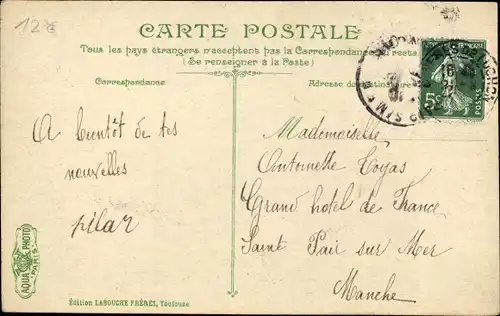 12€
CARTE POSTALE
Tous les pays étrangers n'acceptent pas la Correspondance au recto
(Se renseigner à la Poste)
Correspondance
Adresse du destinataire
FRANÇAISE
5c
POSTES
A bientôt de tes
nouvelles
pilar
Mademoiselle
Antoinette Toyas
Grand hotel de France
Saint Pair sur Mer
Manche
AQUA PHOTO
PARIS
Édition LABOUCHE FRÈRES, Toulouse